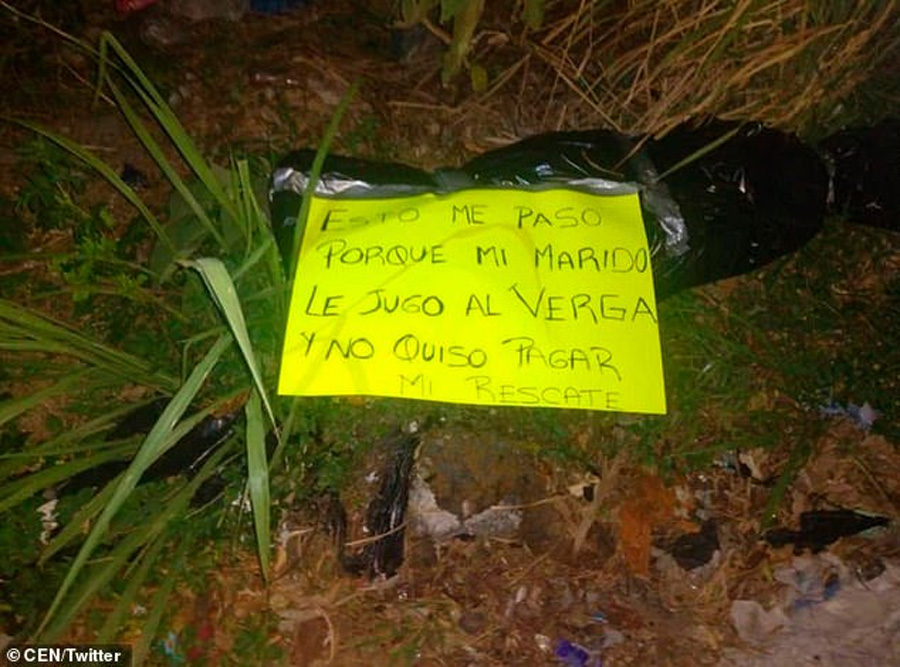 ESTO ME PASO
PORQUE MI MARIDO
LE JUGO AL VERGA
Y NO QUISO PAGAR
MI RESCATE
© CEN/Twitter